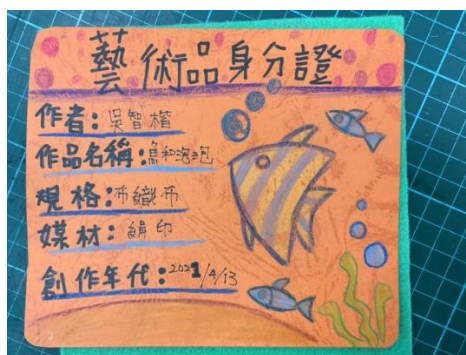 藝術品身分證
作者：吳智
作品名稱：魚和泡泡
規格：布織布
媒材：絹印
創作年代：2021/4/13